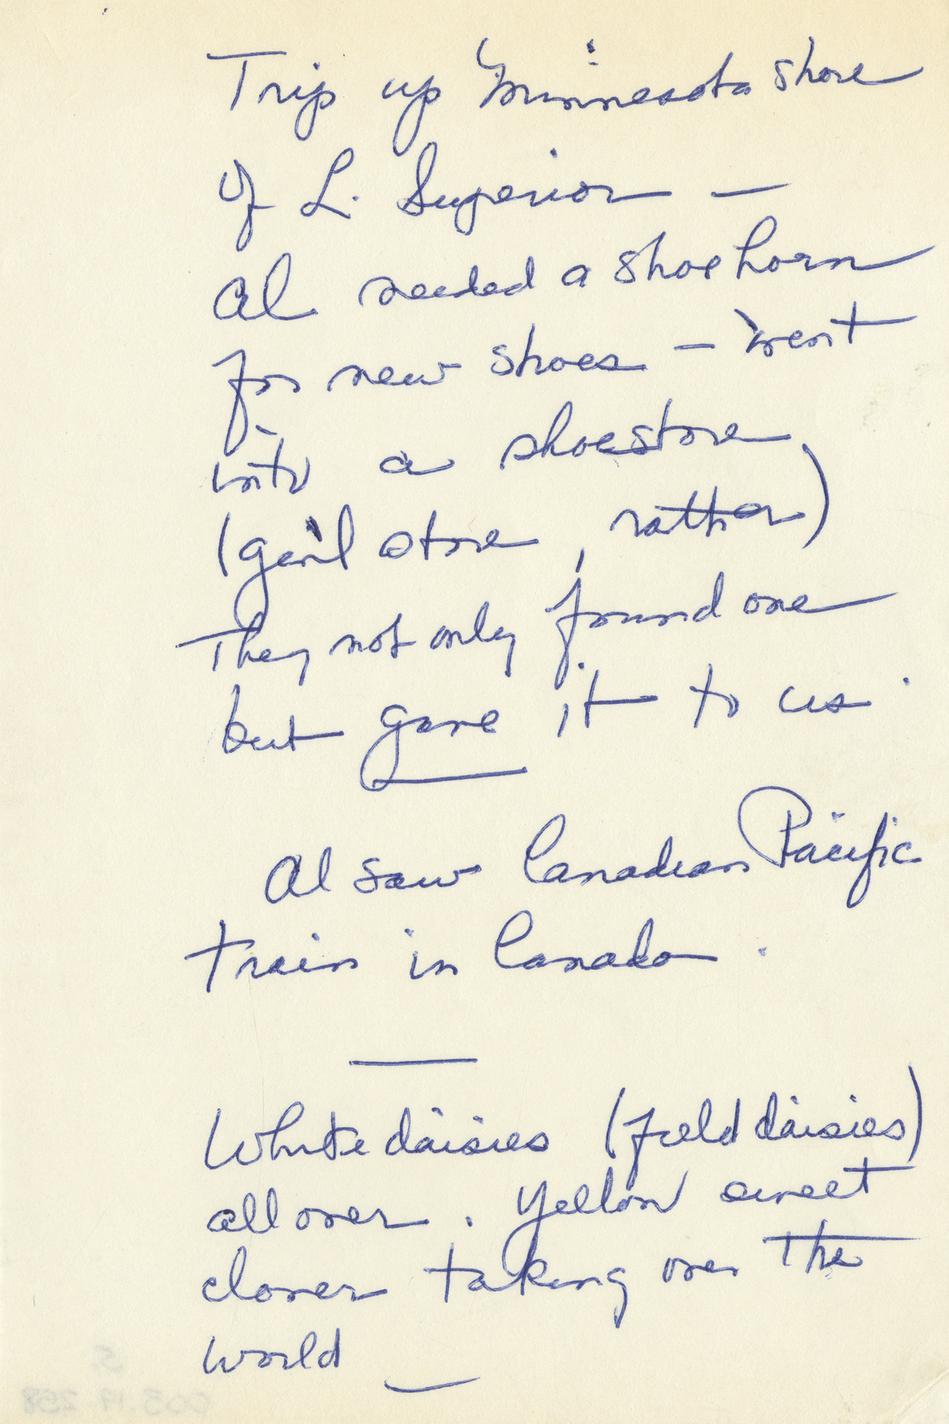 Trip up Minnesota shore
of L. Superior —
Al needed a shoehorn
for new shoes — went
into a shoestore
(gen'l store, rather)
They not only found one
but gave it to us.
Al saw Canadian Pacific
train in Canada.
White daisies (field daisies)
all over. Yellow sweet
clover taking over the
world —